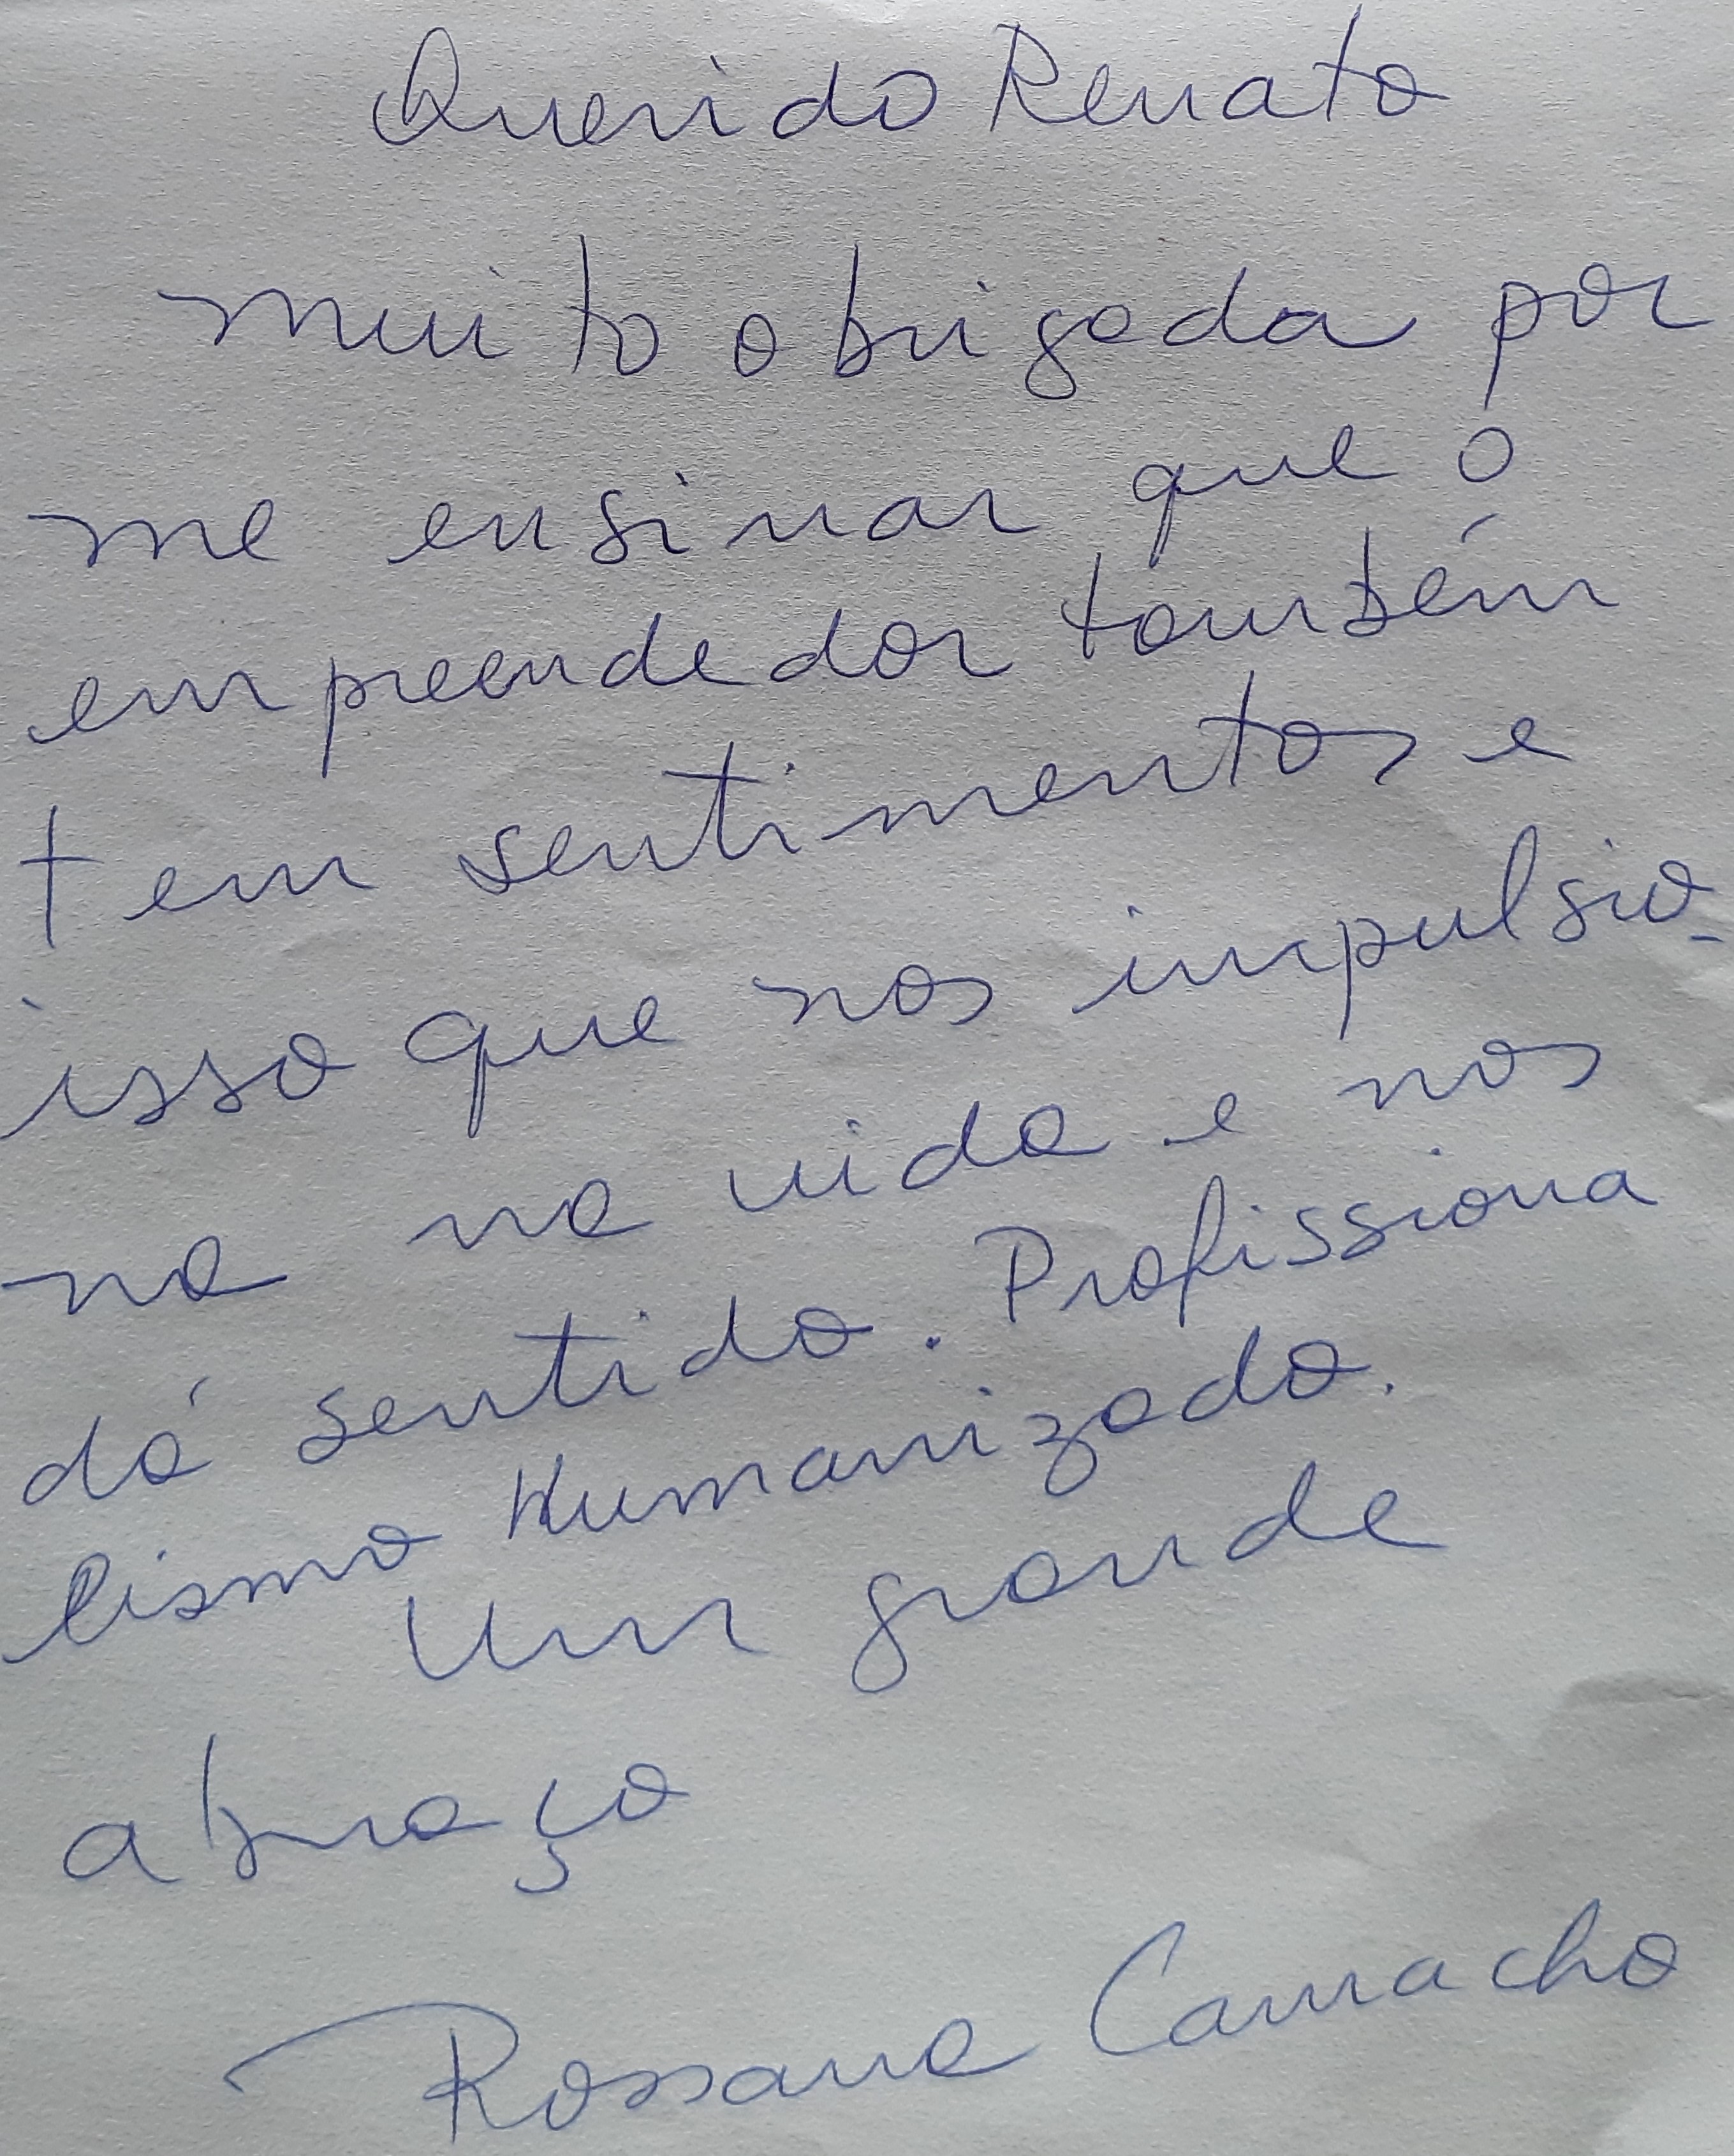 Querido Renato
Muito obrigada por
me ensinar que o
empreendedor também
tem sentimentos e
isso que nos impulsio-
na na vida e nos
dá sentido. Profissiona
lismo Humanizado.
Um grande
abraço
Rossana Camacho